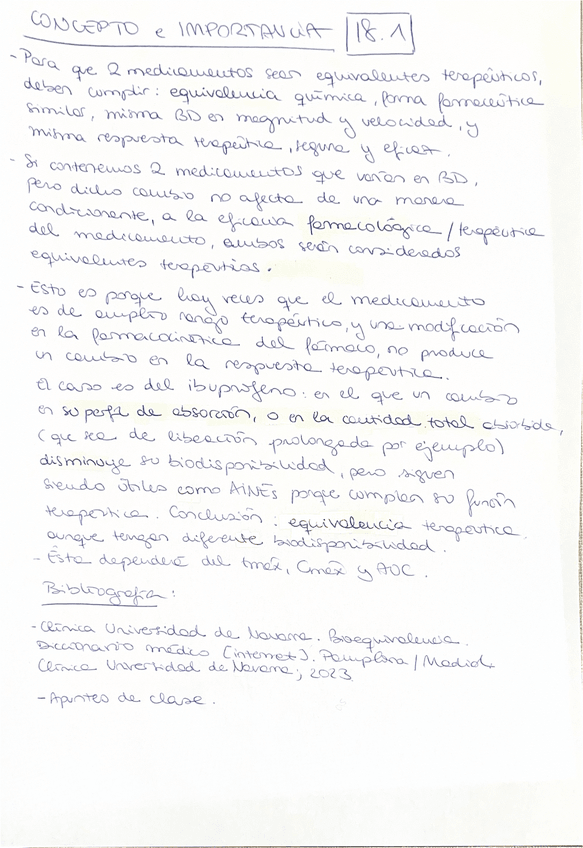 CONCEPTO e IMPORTANCIA 18.1
- Para que 2 medicamentos sean equivalentes terapéuticos,
deben cumplir: equivalencia química, forma farmacéutica
similar, misma BD en magnitud y velocidad, y
misma respuesta terapéutica, segura y eficaz.
- Si contenemos 2 medicamentos que varían en BD,
pero dicho cambio no afecta de una manera
condicionante, a la eficacia farmacológica/terapéutica
del medicamento, ambos serán considerados
equivalentes terapéuticos.
- Esto es porque hay veces que el medicamento
es de amplio rango terapéutico, y una modificación
en la farmacocinética del fármaco, no produce
un cambio en la respuesta terapéutica.
El caso es del ibuprofeno: en el que un cambio
en su perfil de absorción, o en la cantidad total absorbida,
(que sea de liberación prolongada por ejemplo)
disminuye su biodisponibilidad, pero siguen
siendo útiles como AINEs porque cumplen su función
terapéutica. Conclusión: equivalencia terapéutica
aunque tengan diferente biodisponibilidad.
- Ésta dependerá del tmáx, Cmáx y AUC.
Bibliografía:
- Clínica Universidad de Navarra. Bioequivalencia.
Diccionario médico [internet]. Pamplona/Madrid.
Clínica Universidad de Navarra; 2023
- Apuntes de clase.